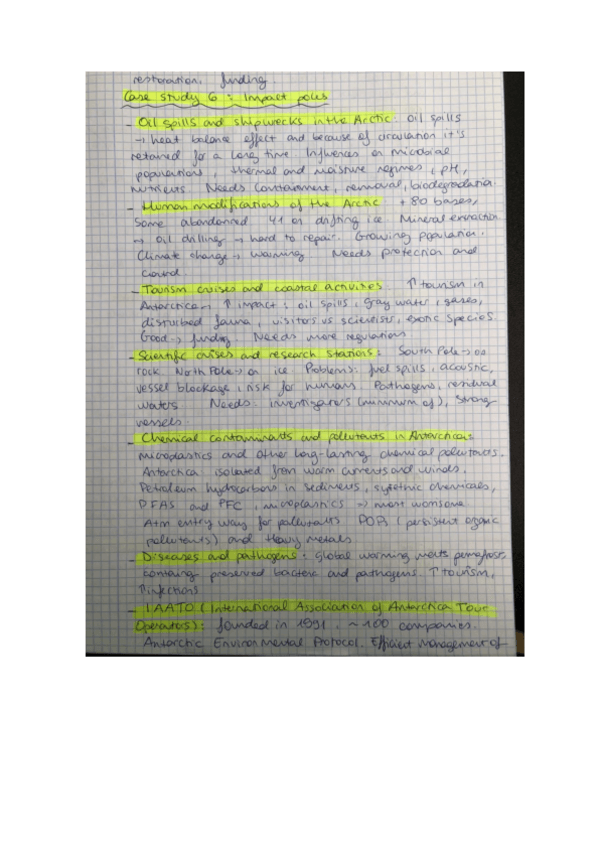 restoration, funding
Case study 6: Impact poles
- Oil spills and shipwrecks in the Arctic: oil spills
→ heat balance effect and because of circulation it's
retained for a long time. Influences on microbial
populations, thermal and moisture regimes, pH,
nutrients. Needs containment, removal, biodegradation.
- Human modifications of the Arctic: +80 bases,
some abandoned. 41 on drifting ice. Mineral extraction
→ oil drilling → hard to repair. Growing population.
Climate change → warming. Needs protection and
control.
- Tourism cruises and coastal activities: ↑ tourism in
Antarctica → ↑ impact: oil spills, gray water, gases,
disturbed fauna, visitors vs scientists, exotic species.
Good → funding. Needs more regulations
- Scientific cruises and research stations: South Pole → on
rock North Pole → on ice Problems: fuel spills, acoustic,
vessel blockage, risk for humans. Pathogens, residual
waters. Needs: investigators (minimum of), strong
vessels.
- Chemical contaminants and pollutants in Antarctica:
microplastics and other long-lasting chemical pollutants.
Antarctica isolated from warm currents and winds.
Petroleum hydrocarbons in sediments, sythetic chemicals,
PFAS and PFC, microplastics → most worrisome
Atm entry way for pollutants. POPs (persistent organic
pollutants) and heavy metals
- Diseases and pathogens: Global warming melts permafrost
containing preserved bacteria and pathogens. ↑ tourism,
↑ infections
- IAATO (International Association of Antarctica Tour
Operators): founded in 1991. ~100 companies.
Antarctic Environmental Protocol. Efficient management of